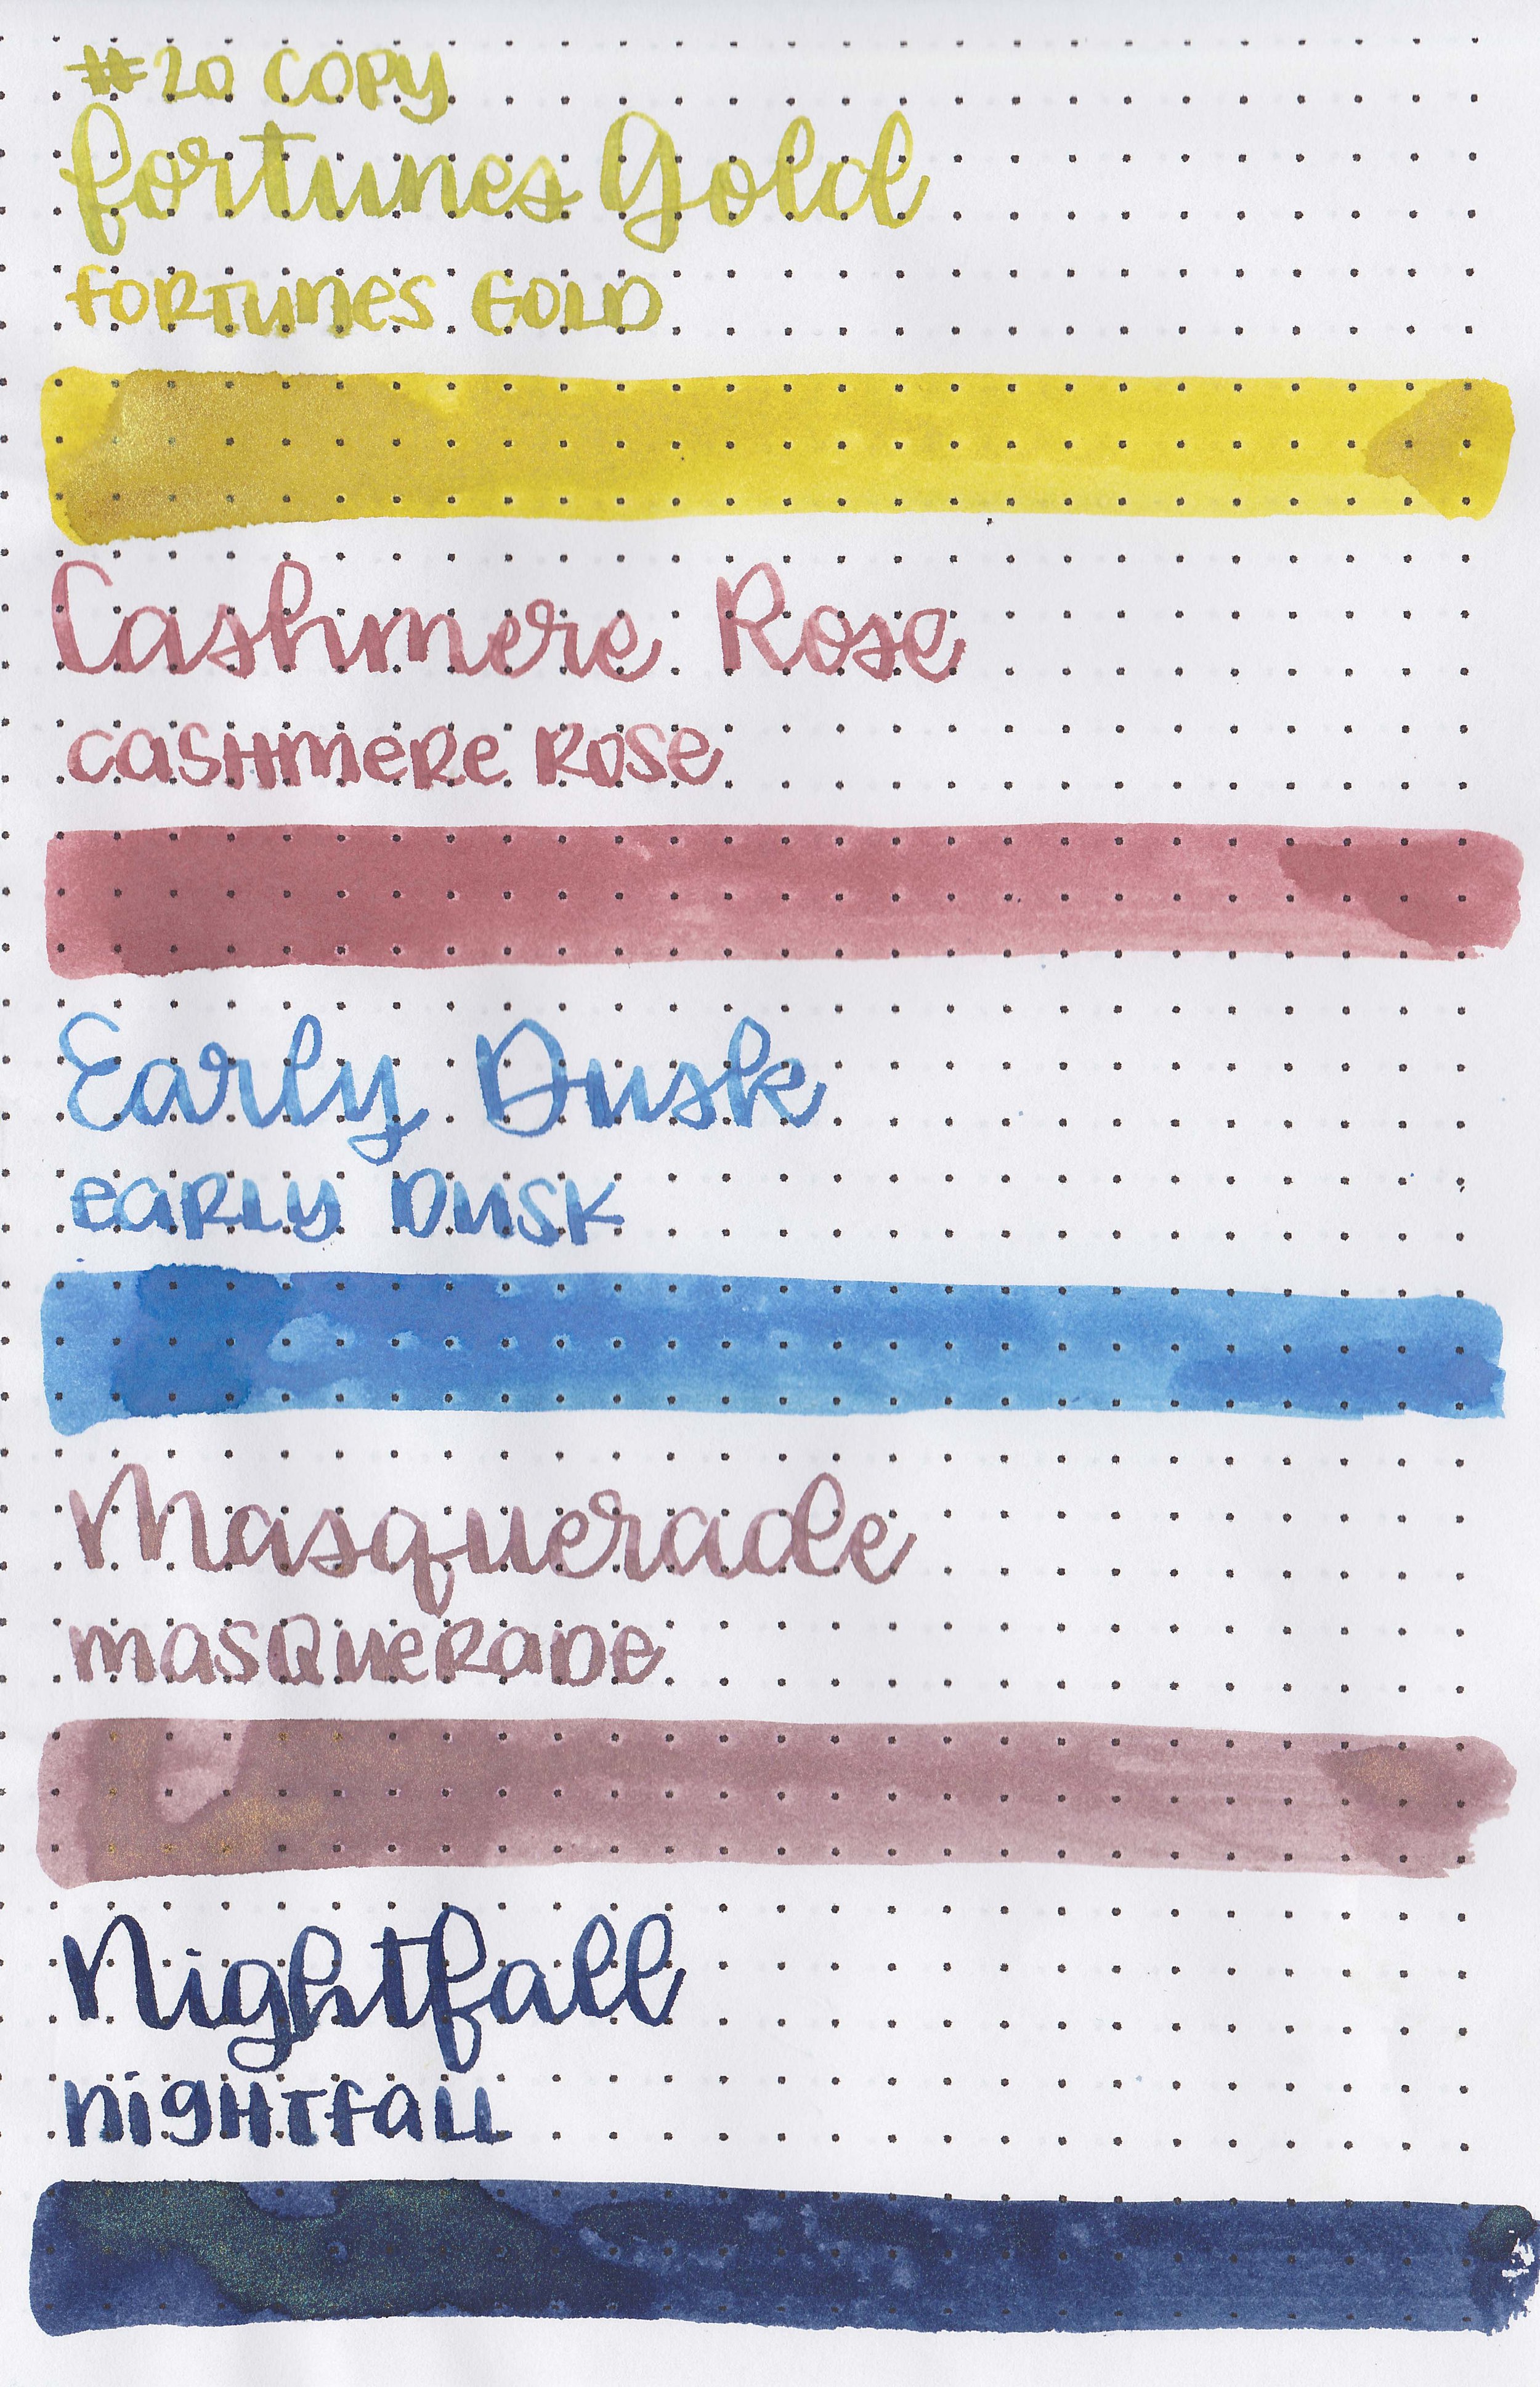 #20 COPY
fortunes Gold
FORTUNES GOLD
Cashmere Rose
CASHMERE ROSE
Early Dusk
EARLY DUSK
Masquerade
MASQUERADE
Nightfall
NIGHTFALL